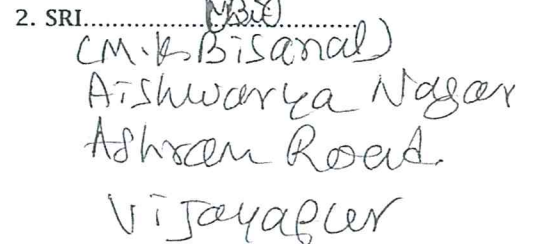 2. SRI..............................................
(M.K. Bisanal)
Aishwarya Nagar
Ashram Road.
Vijayapur